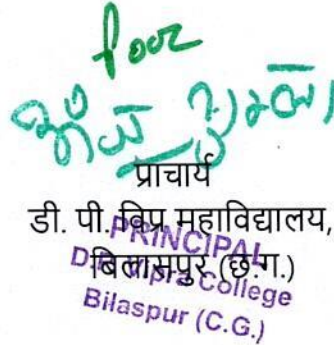 प्राचार्य
डी. पी. विप्र महाविद्यालय,
बिलासपुर (छ.ग.)
PRINCIPAL
D.P. Vipra College
Bilaspur (C.G.)